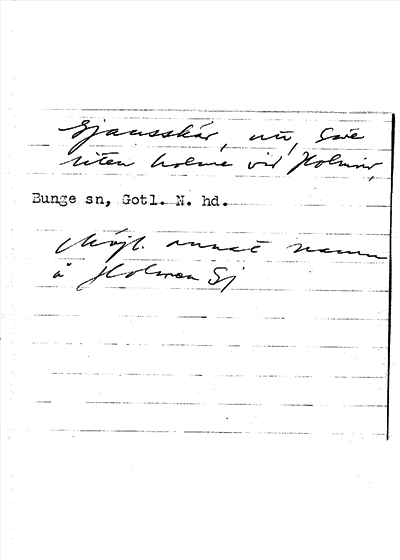 Sjausskär, nu,
liten holme vid Holmar,
Bunge sn, Gotl. N. hd.
Möjl. annat namn
å Holmen Sj